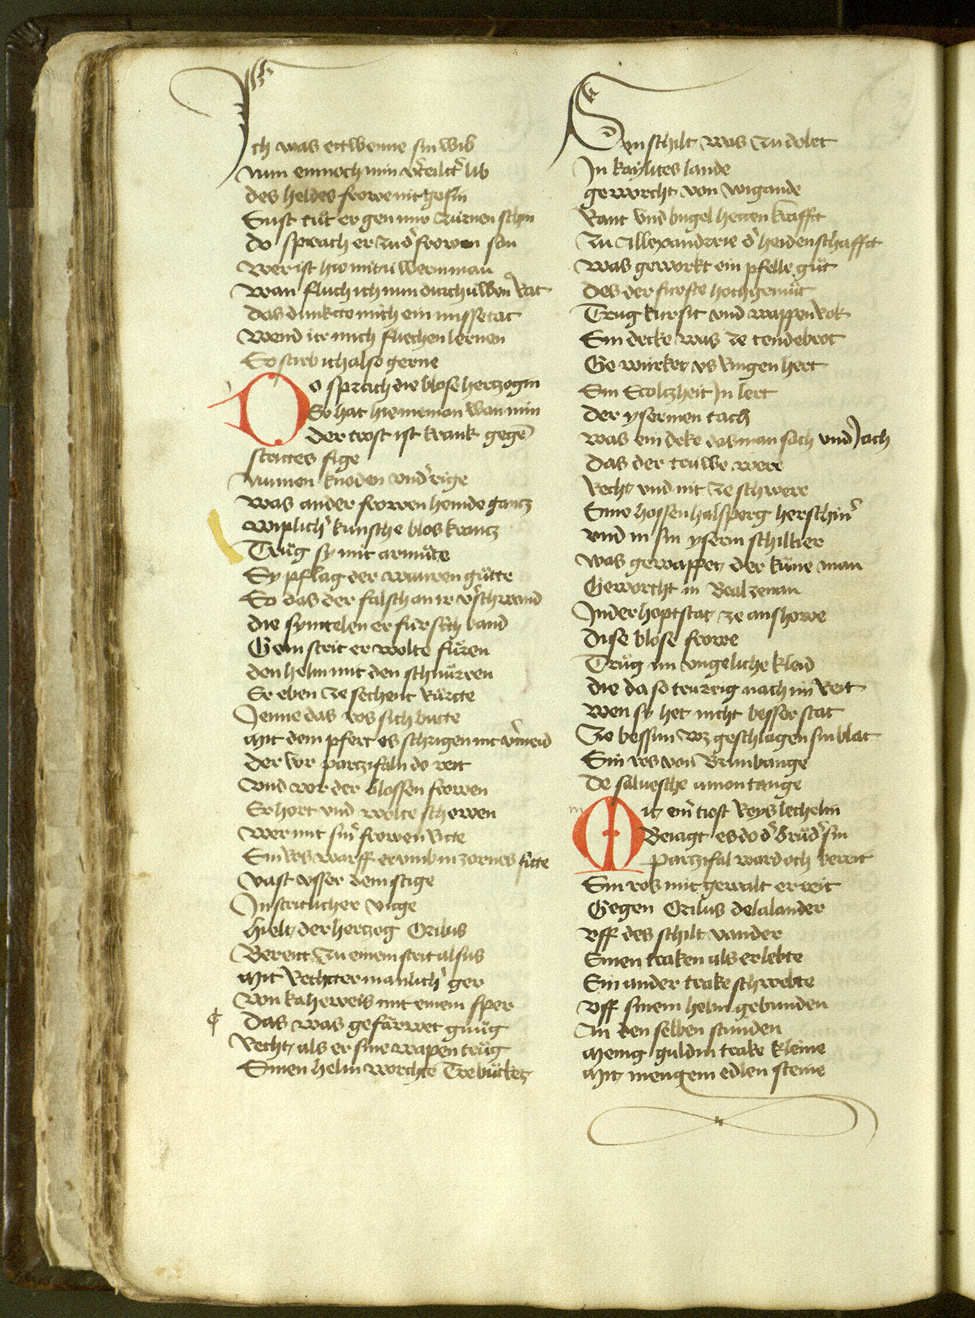 Ich was ettwenne sin wib
Nun enmoch min v͛teilt͛ lib
des heldes frowe nit gesin
Sust tuͦt er gen mir zurnen schin
do sprach er zuͦ d͛ frowen san
wer ist hie mit ú wern man
wan fluch ich nun durch úwern Rat
das dunckte mich ein missetat
Wend ir mich fluchen lernen
So stirb ich also gerne
Do sprach die blose hertzogin
So hat hie nieman wan min
der trost ist krank gege͂
strittes sige
Nunnen knoden vnd͛ rige
was ander frowen hemde gantz
wiplich͛ kunsche blos krantz
Truͦg sy mit armuͤte
Sy pflag der waren guͤtte
So das der falsch an ir v͛schwand
die syntelen er fúr sich band
Gein strit er wolte fuͤren
den helm mit den schnuͤren
Er eben ze sechent Ruͦcte
Jenne das ros sich bucte
Mit dem pfert es schrigen nit v͛meid
der vor partzifaln do reit
Vnd vor der blossen frowen
Er hort vnd wolte schowen
wer mit sin͛ frowen Ritte
Ein ros warff er vmb in zornes sitte
vast vsser dem stige
In stritlicher wige
Hielt der hertzog Orilus
Bereit zu einem strit alsus
Mit Rechter manlich͛ ger
von kaherweis mit einem sper
Das was geferwet gnuͦg
Recht als er sine wapen truͦg
Sinen helm worchte Trebuͤket
Sin schilt was zu dolet
In kaylites lande
geworcht von wigande
Rant vnd bugel hetten krafft
Zu Allexandrie d͛ heidenschafft
was geworkt ein pfelle guͦt
des der fúrste hochgemuͦt
Trug kursit vnd wappen Rok
Sin decke was ze tendebrot
Geworket vs Ringen hert
Sin Stoltzheit jn lert
der yserinen tach
was ein deke das man sach vnd jach
das der teu were
Recht vnd nit ze schwere
Sine hossen halsperg herschin͛
vnd in sin yserin schillier
was gewappet der kuͤne man
Geworcht in Bealzenan
In der hoptstat ze anshowe
Diße blose frowe
Truͦg im vngeliche kleid
die da so trurrig nach im Reit
wen sy het nicht besser stat
Ze bessun wz geschlagen sin blat
Sin ros von Brunbange
De saluesche a montange
m
Mit ein͛ tiost Roys lechelin
Beiagt es do d͛ bruͦd͛ sin
partzifal ward och bereit
Sin ros mit gewalt er reit
Gegen Orilus delalander
vff des schilt vander
Einen traken als er lebte
Ein ander trake schwebte
vff sinem helm gebunden
An den selben stunden
Menig guldin trake kleine
Mit mengem edlen steine